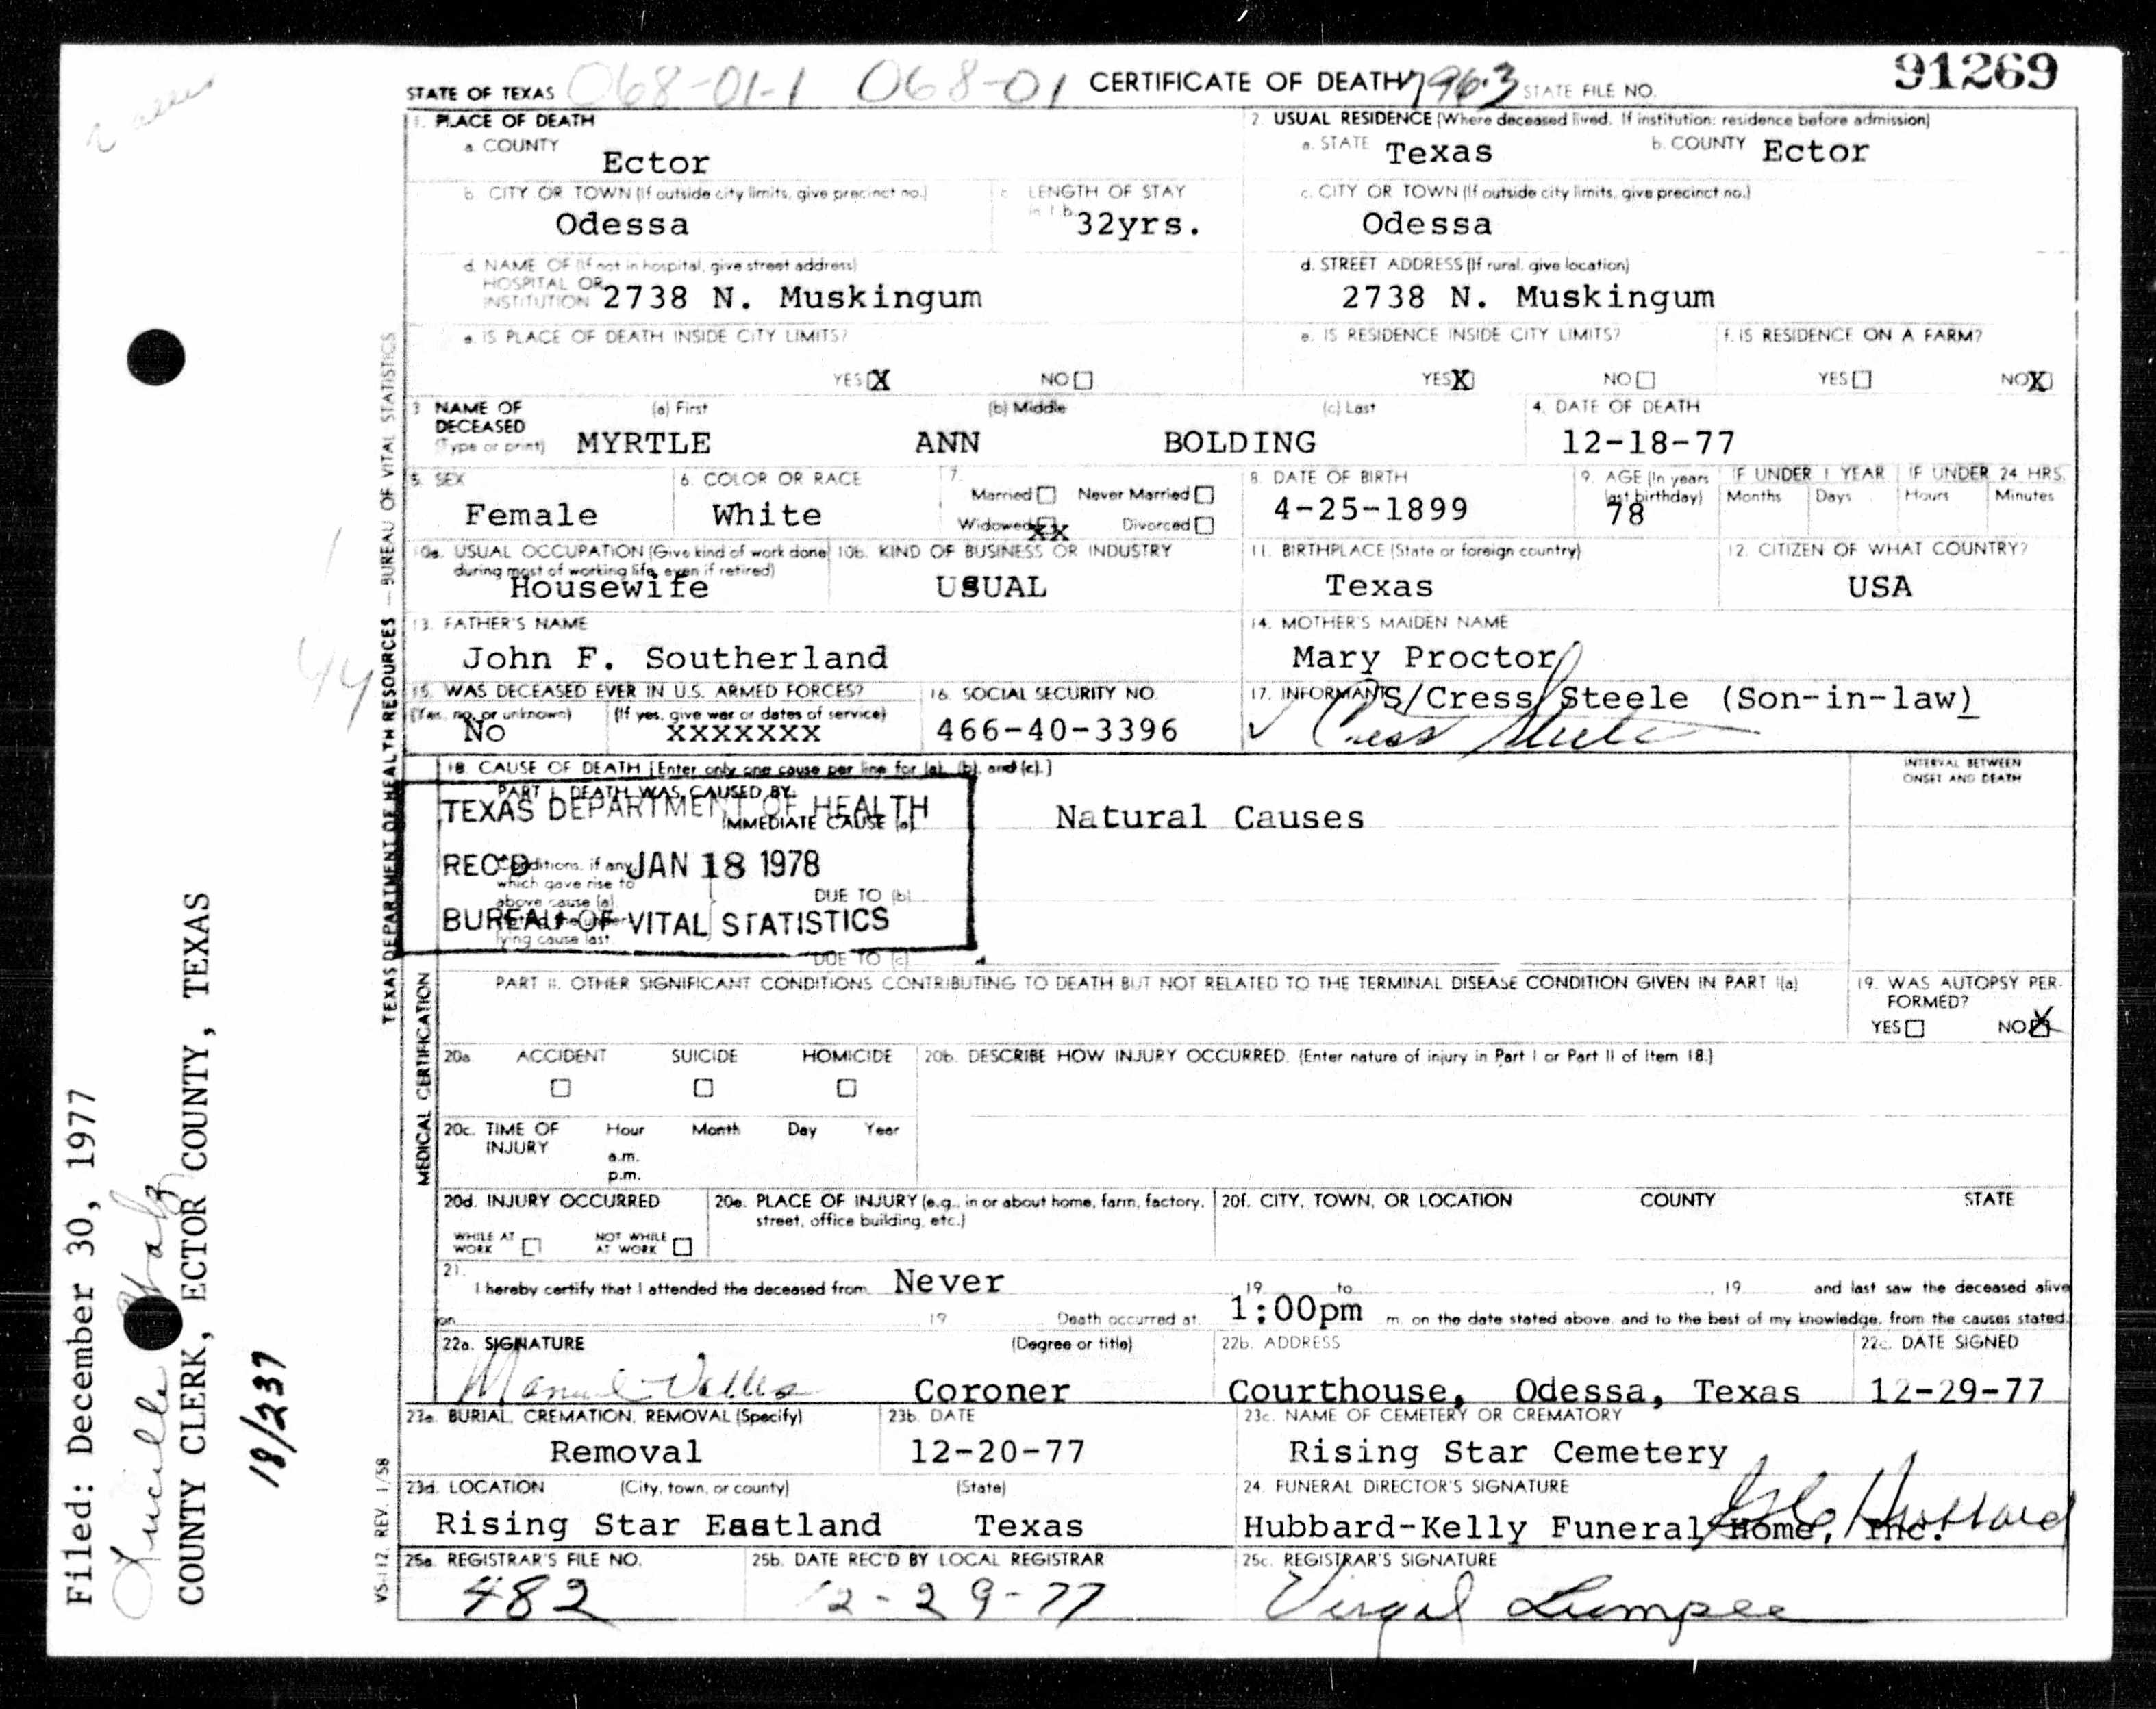 91269
STATE OF TEXAS 068-01-1 068-01 CERTIFICATE OF DEATH 7963 STATE FILE NO.
1. PLACE OF DEATH
a. COUNTY
Ector
2. USUAL RESIDENCE (Where deceased lived. If institution: residence before admission)
a. STATE Texas b. COUNTY Ector
b. CITY OR TOWN (If outside city limits, give precinct no.)
Odessa
c. LENGTH OF STAY
in 1 b. 32yrs.
c. CITY OR TOWN (If outside city limits, give precinct no.)
Odessa
d. NAME OF (If not in hospital, give street address)
HOSPITAL OR
INSTITUTION 2738 N. Muskingum
d. STREET ADDRESS (If rural, give location)
2738 N. Muskingum
e. IS PLACE OF DEATH INSIDE CITY LIMITS?
YES X NO
e. IS RESIDENCE INSIDE CITY LIMITS?
YES X NO
f. IS RESIDENCE ON A FARM?
YES NO X
3. NAME OF DECEASED (a) First (b) Middle (c) Last
(Type or print) MYRTLE ANN BOLDING
4. DATE OF DEATH
12-18-77
5. SEX
Female
6. COLOR OR RACE
White
7.
Married Never Married
Widowed XX Divorced
8. DATE OF BIRTH
4-25-1899
9. AGE (In years
last birthday)
78
IF UNDER 1 YEAR IF UNDER 24 HRS.
Months Days Hours Minutes
10a. USUAL OCCUPATION (Give kind of work done
during most of working life, even if retired)
Housewife
10b. KIND OF BUSINESS OR INDUSTRY
USUAL
11. BIRTHPLACE (State or foreign country)
Texas
12. CITIZEN OF WHAT COUNTRY?
USA
13. FATHER'S NAME
John F. Southerland
14. MOTHER'S MAIDEN NAME
Mary Proctor
15. WAS DECEASED EVER IN U.S. ARMED FORCES?
(Yes, no, or unknown) (If yes, give war or dates of service)
No XXXXXXX
16. SOCIAL SECURITY NO.
466-40-3396
17. INFORMANT S/Cress Steele (Son-in-law)
Cress Steele
18. CAUSE OF DEATH [Enter only one cause per line for (a), (b), and (c).]
PART I. DEATH WAS CAUSED BY:
IMMEDIATE CAUSE (a) Natural Causes
INTERVAL BETWEEN
ONSET AND DEATH
Conditions, if any
which gave rise to
above cause (a)
lying cause last.
DUE TO (b)
DUE TO (c)
TEXAS DEPARTMENT OF HEALTH
REC'D JAN 18 1978
BUREAU OF VITAL STATISTICS
PART II. OTHER SIGNIFICANT CONDITIONS CONTRIBUTING TO DEATH BUT NOT RELATED TO THE TERMINAL DISEASE CONDITION GIVEN IN PART I(a)
19. WAS AUTOPSY PER-
FORMED?
YES NO X
20a. ACCIDENT SUICIDE HOMICIDE
20b. DESCRIBE HOW INJURY OCCURRED. (Enter nature of injury in Part I or Part II of Item 18.)
20c. TIME OF INJURY Hour Month Day Year
a.m.
p.m.
20d. INJURY OCCURRED
WHILE AT WORK NOT WHILE AT WORK
20e. PLACE OF INJURY (e.g., in or about home, farm, factory,
street, office building, etc.)
20f. CITY, TOWN, OR LOCATION COUNTY STATE
21.
I hereby certify that I attended the deceased from Never 19 to , 19 and last saw the deceased alive
on 19 Death occurred at 1:00pm m. on the date stated above, and to the best of my knowledge, from the causes stated.
22a. SIGNATURE (Degree or title)
Manuel Valles Coroner
22b. ADDRESS
Courthouse, Odessa, Texas
22c. DATE SIGNED
12-29-77
23a. BURIAL, CREMATION, REMOVAL (Specify)
Removal
23b. DATE
12-20-77
23c. NAME OF CEMETERY OR CREMATORY
Rising Star Cemetery
23d. LOCATION (City, town, or county) (State)
Rising Star Eastland Texas
24. FUNERAL DIRECTOR'S SIGNATURE
Hubbard-Kelly Funeral Home, Inc.
25a. REGISTRAR'S FILE NO.
482
25b. DATE REC'D BY LOCAL REGISTRAR
12-29-77
25c. REGISTRAR'S SIGNATURE
Virgil Lumpee
TEXAS DEPARTMENT OF HEALTH RESOURCES — BUREAU OF VITAL STATISTICS
MEDICAL CERTIFICATION
VS-112, REV. 1/58
Filed: December 30, 1977
Lucille
COUNTY CLERK, ECTOR COUNTY, TEXAS
18/237